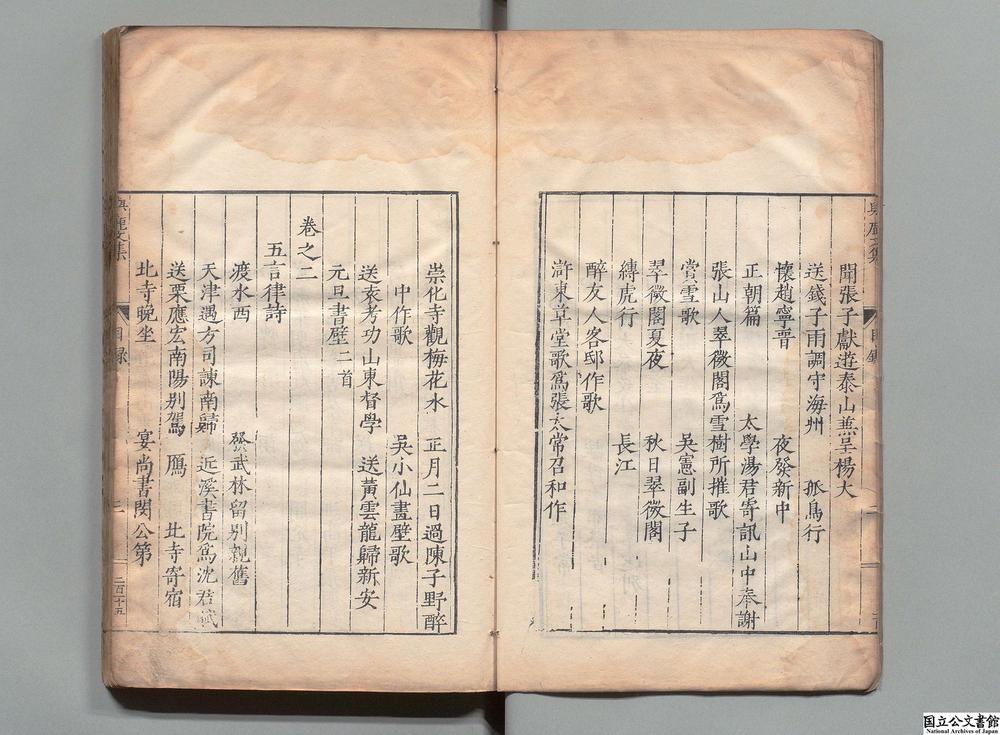 聞張子獻遊泰山兼呈楊大
送錢子雨調守海州 孤鳥行
懷趙寧晋 夜發新中
正朝篇 太學湯君寄訊山中奉謝
張山人翠微閣爲雪樹所摧歌
賞雪歌 吳憲副生子
翠微閣夏夜 秋日翠微閣
縛虎行 長江
醉友人客邸作歌
滸東草堂歌爲張太常召和作
崇化寺觀梅花水 正月二日過陳子野醉
中作歌 吳小仙畫壁歌
送袁考功山東督學 送黃雲龍歸新安
元旦書壁二首
卷之二
五言律詩
渡水西 發武林留別親舊
天津遇方司諫南歸 近溪書院爲沈君賦
送栗應宏南陽別駕 鴈 北寺寄宿
北寺晚坐 宴尚書閔公第
目錄
三
二百十五
国立公文書館
National Archives of Japan